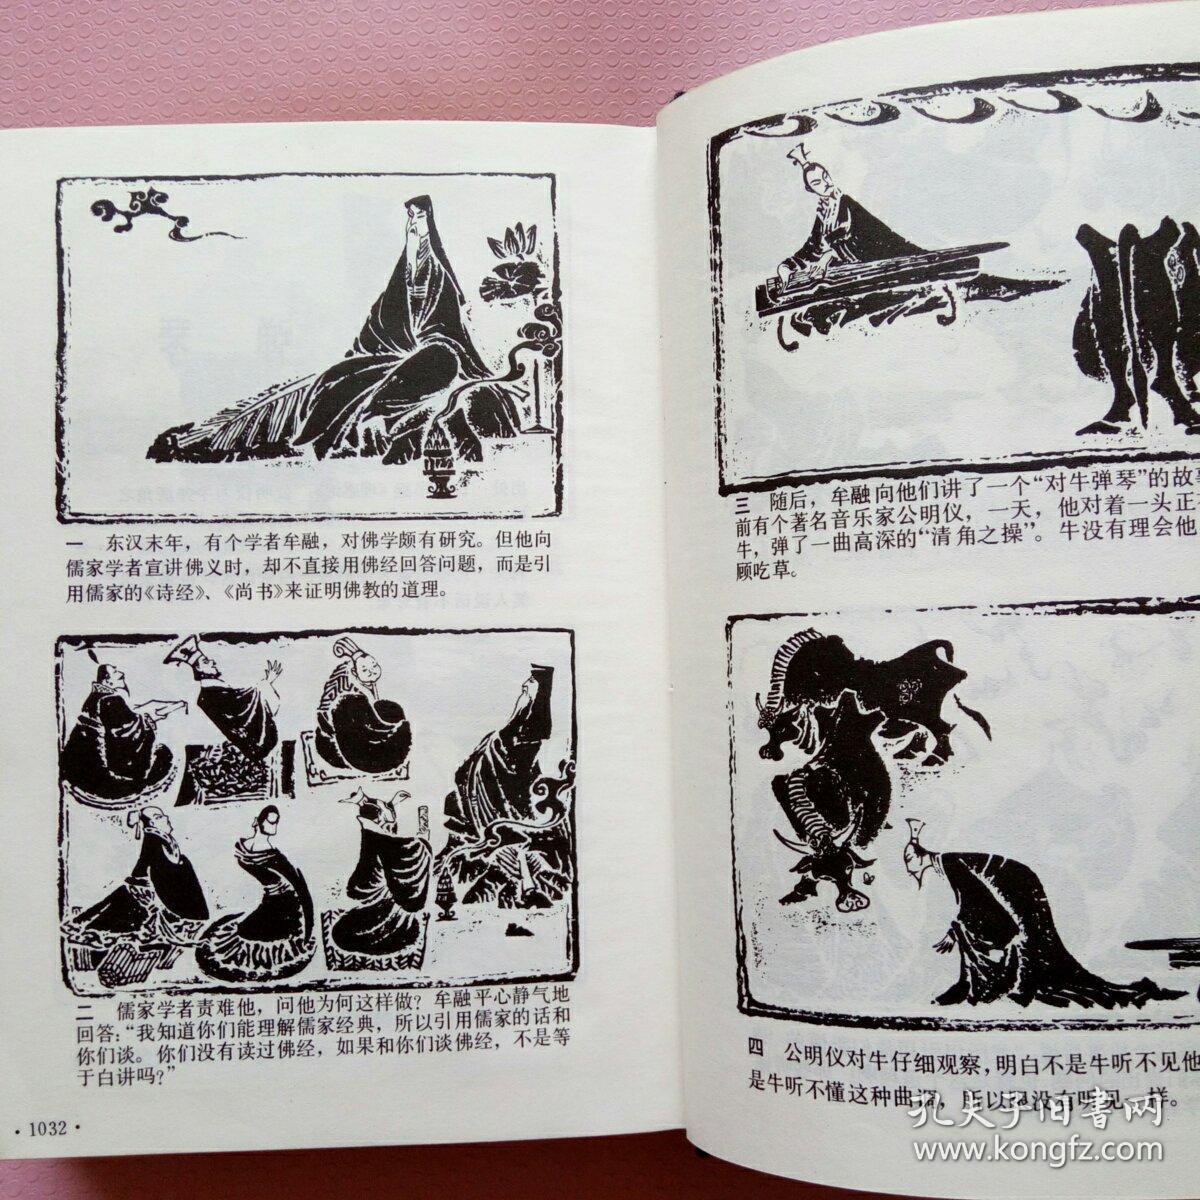 一 东汉末年，有个学者牟融，对佛学颇有研究。但他向
儒家学者宣讲佛义时，却不直接用佛经回答问题，而是引
用儒家的《诗经》、《尚书》来证明佛教的道理。
二 儒家学者责难他，问他为何这样做？牟融平心静气地
回答：“我知道你们能理解儒家经典，所以引用儒家的话和
你们谈。你们没有读过佛经，如果和你们谈佛经，不是等
于白讲吗？”
·1032·
三 随后，牟融向他们讲了一个“对牛弹琴”的故事
前有个著名音乐家公明仪，一天，他对着一头正
牛，弹了一曲高深的“清角之操”。牛没有理会他
顾吃草。
四 公明仪对牛仔细观察，明白不是牛听不见他
是牛听不懂这种曲调，所以跟没有听见一样。
孔夫子旧书网
www.kongfz.com